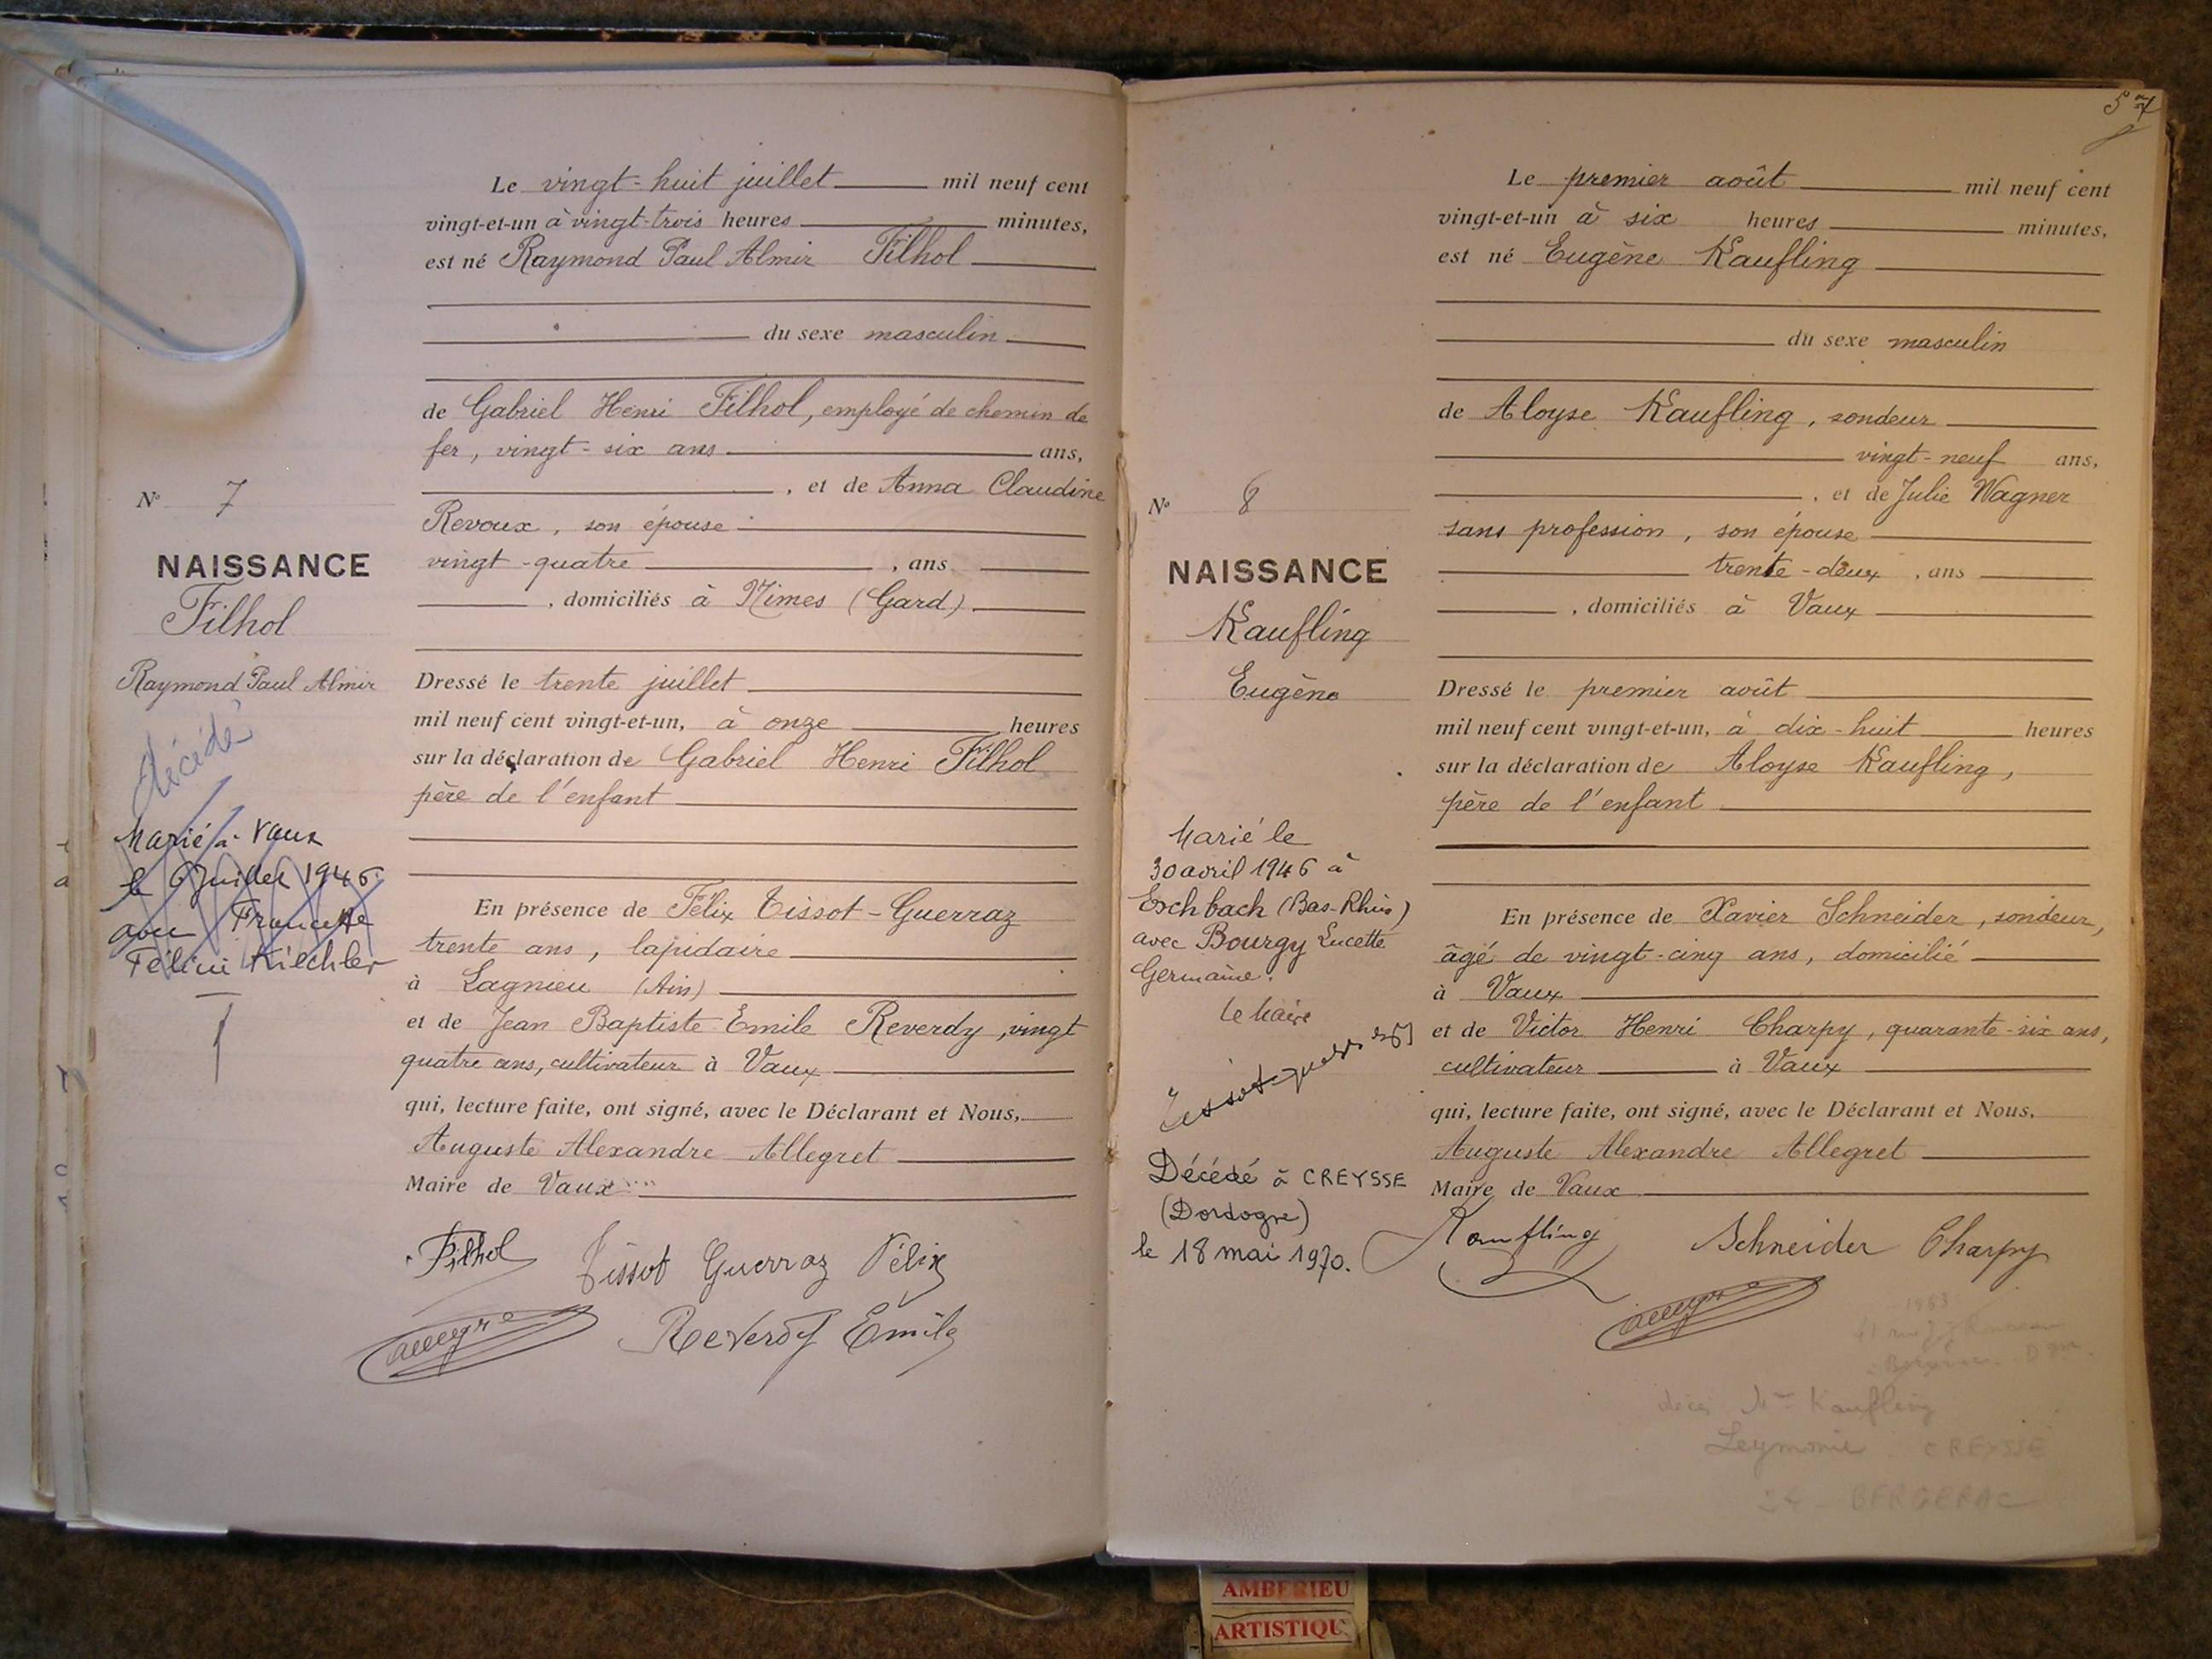 Le vingt-huit juillet mil neuf cent
vingt-et-un à vingt-trois heures minutes,
est né Raymond Paul Almir Filhol
du sexe masculin
de Gabriel Henri Filhol, employé de chemin de
fer, vingt-six ans ans,
, et de Anna Claudine
Revoux, son épouse
vingt-quatre , ans
, domiciliés à Nîmes (Gard)
Dressé le trente juillet
mil neuf cent vingt-et-un, à onze heures
sur la déclaration de Gabriel Henri Filhol
père de l'enfant
En présence de Félix Tissot-Guerraz
trente ans, lapidaire
à Lagnieu (Ain)
et de Jean Baptiste Emile Reverdy, vingt
quatre ans, cultivateur à Vaux
qui, lecture faite, ont signé, avec le Déclarant et Nous,
Auguste Alexandre Allegret
Maire de Vaux
Filhol Tissot Guerraz Félix
Allegret Reverdy Emile
N° 7
NAISSANCE
Filhol
Raymond Paul Almir
décédé
Marié à Vaux
le 6 Juillet 1946
avec Francette
Kiechler
57
Le premier août mil neuf cent
vingt-et-un à six heures minutes,
est né Eugène Kaufling
du sexe masculin
de Aloyse Kaufling, sondeur
vingt-neuf ans,
, et de Julie Wagner
sans profession, son épouse
trente-deux , ans
, domiciliés à Vaux
Dressé le premier août
mil neuf cent vingt-et-un, à dix-huit heures
sur la déclaration de Aloyse Kaufling,
père de l'enfant
En présence de Xavier Schneider, sondeur,
âgé de vingt-cinq ans, domicilié
à Vaux
et de Victor Henri Charpy, quarante-six ans,
cultivateur à Vaux
qui, lecture faite, ont signé, avec le Déclarant et Nous,
Auguste Alexandre Allegret
Maire de Vaux
Kaufling Schneider Charpy
Allegret
N° 8
NAISSANCE
Kaufling
Eugène
Marié le
30 avril 1946 à
Eschbach (Bas-Rhin)
avec Bourgy Lucette
Germaine.
le Maire
Décédé à CREYSSE
(Dordogne)
le 18 mai 1970.
1963
décès Mr Kaufling
Leymonie CREYSSE
24 - BERGERAC
AMBERIEU
ARTISTIQU